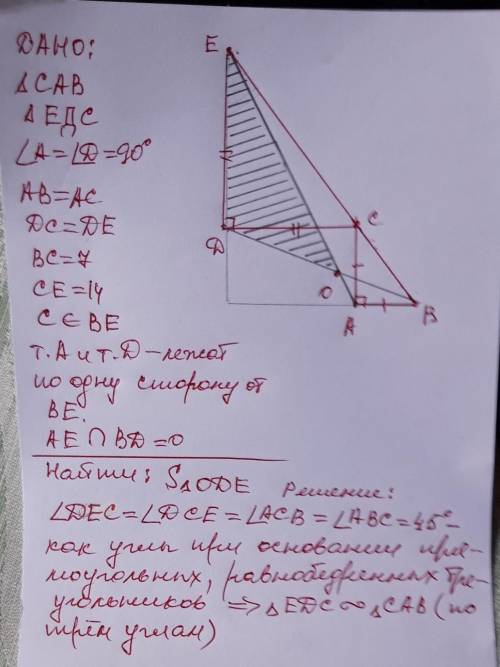 ДАНО:
△САВ
△ЕДС
∠A=∠D=90°
AB=AC
DC=DE
BC=7
CE=14
C∈BE
т.А и т.D-лежат
по одну сторону от
BE.
AE∩BD=O
Найти: S△ODE Решение:
∠DEC=∠DCE=∠ACB=∠ABC=45°-
как углы при основании пря-
моугольных, равнобедренных тре-
угольников => △EDC∾△CAB (по
трём углам)
E
D
C
O
A
B